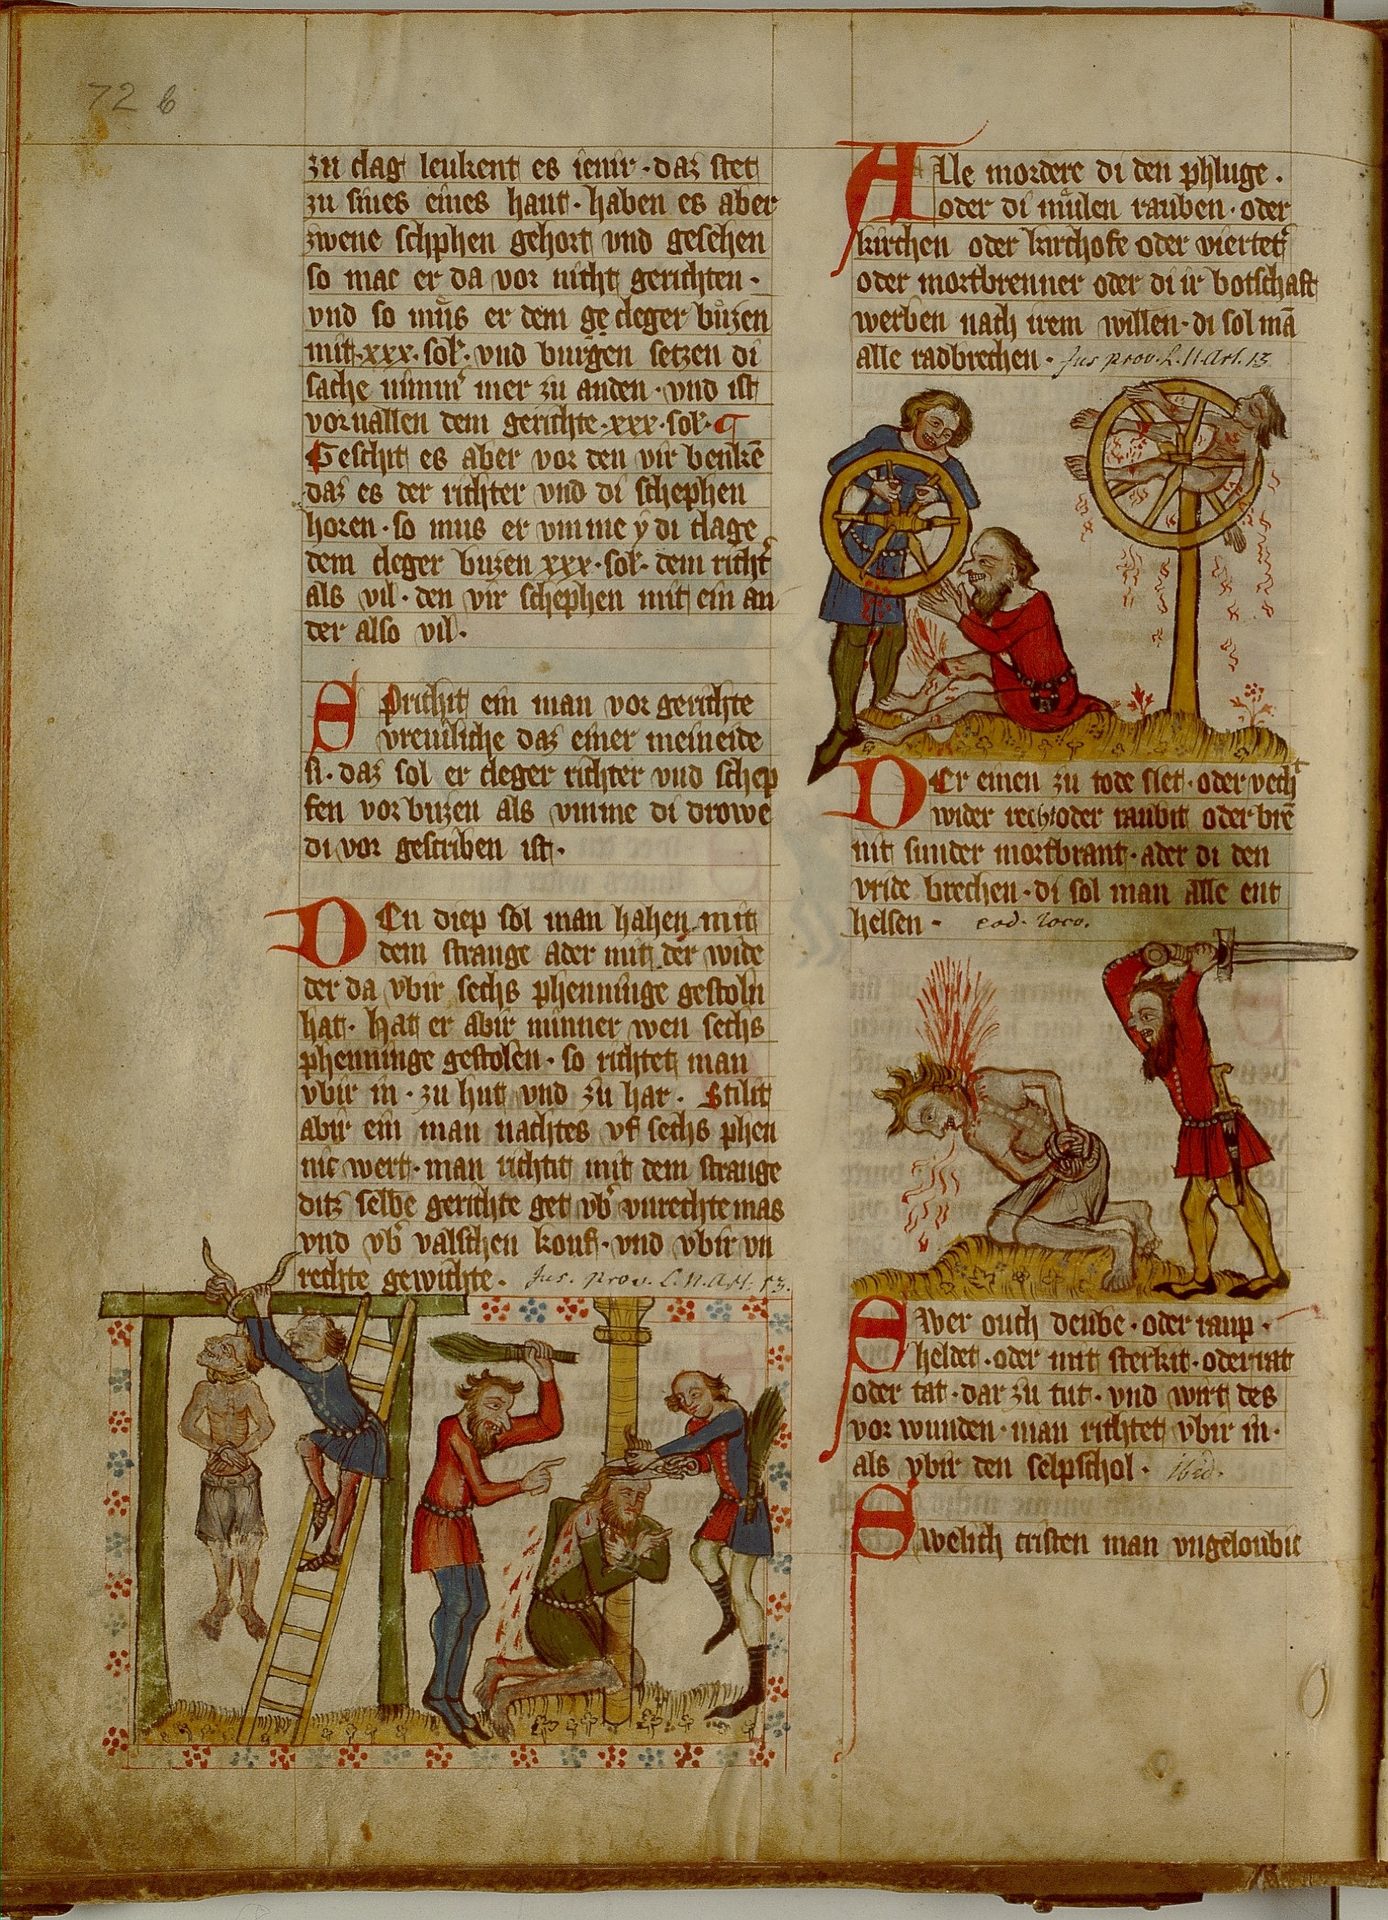 72 b
zu clag leukent es iener · daz stet
zu sines eines hant · haben es aber
zwene schphen gehort vnd gesehen
so mac er da vor nicht gerichten ·
vnd so mus er dem cleger buzen
mit · xxx · sol · vnd burgen setzen di
sache nimmer mer zu anden · vnd ist
vor uallen dem gerichte · xxx · sol ·
Geschit es aber vor den vir benkē
daz es der richter vnd di schephen
horen · so mus er vmme y di clage
dem cleger buzen xxx · sol · dem richt᾽
als vil · den vir schephen mit ein an
der also vil ·
Sprichit ein man vor gerichte
vreuiliche daz einer meineide
si · daz sol er cleger richter vnd schep
fen vor buzen als vmme di drowe
di vor gescriben ist ·
Den diep sol man hahen mit
dem strange ader mit der wide
der da vbir sechs phenninge gestoln
hat · hat er abir minner wen sechs
phenninge gestolen · so richtet man
vbir in · zu hut vnd zu har · Stilit
abir ein man nachtes vf sechs phen
nic wert · man richtit mit dem strange
ditz selbe gerichte get vb᾽ vnrechte mas
vnd vb᾽ valschen kouf · vnd vbir vn
rechte gewichte · Jus. prov. L. II. Art. 13.
Alle mordere di den phluge ·
oder di mulen rauben · oder
kirchen oder kirchofe oder
oder mortbrenner oder di ir botschaft
werben nach irem willen · di sol mā
alle radbrechen · Jus prov. L. II. Art. 13
Der einen zu tode slet · oder vech᾽t
wider recht oder raubit oder brē
nit sunder mortbrant · ader di den
vride brechen · di sol man alle ent
helsen · eod. loco.
Swer ouch deube · oder raup ·
heldet · oder mit sterkit · oder rat
oder tat · dar zu tut · vnd wirt des
vor wunden · man richtet vbir in ·
als vbir den selpschol · ibid.
Swelich cristen man vngeloubic